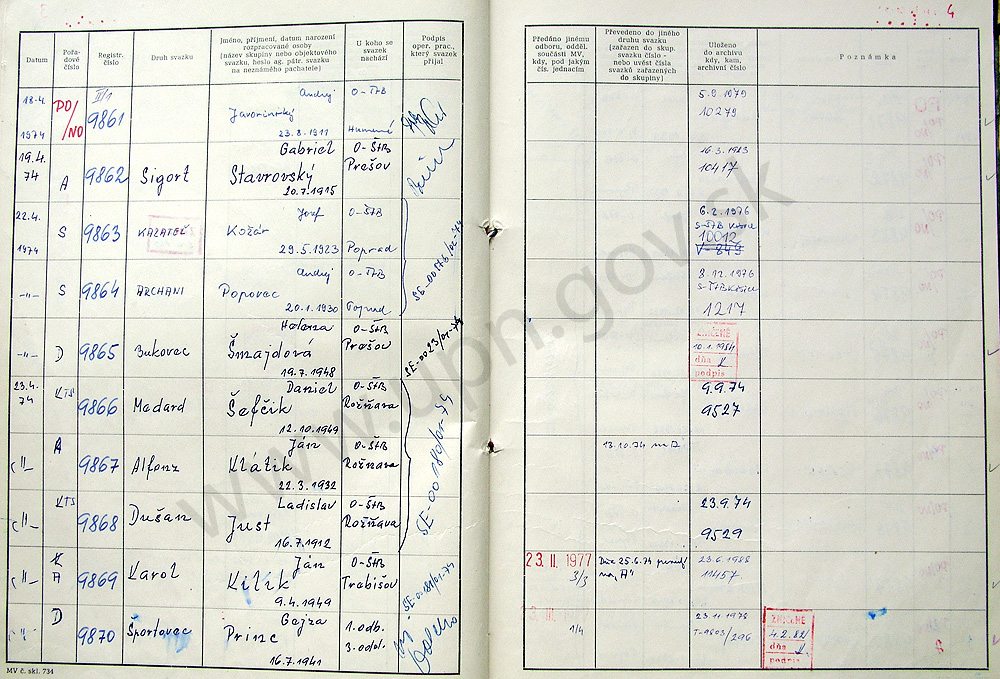 4
Datum
Pořa-
dové
číslo
Registr.
číslo
Druh svazku
Jméno, příjmení, datum narození
rozpracované osoby
(název skupiny nebo objektového
svazku, heslo ag. pátr. svazku
na neznámého pachatele)
U koho se
svazek
nachází
Podpis
oper. prac.,
který svazek
přijal
Předáno jinému
odboru, odděl.
součásti MV,
kdy, pod jakým
čís. jednacím
Převedeno do jiného
druhu svazku
(zařazen do skup.
svazku číslo -
nebo uvést čísla
svazků zařazených
do skupiny)
Uloženo
do archívu
kdy, kam,
archivní číslo
Poznámka
18.4.
1974
PO/
/NO
II/1
9861
Andrej
Javorinský
23.8.1911
O-ŠtB
Humenné
5.9.1979
10279
19.4.
74
A
9862
Sigort
Gabriel
Stavrovský
20.7.1915
O-ŠtB
Prešov
16.3.1983
10417
22.4.
1974
S
9863
KAZATEĽ
Jozef
Kožár
29.5.1923
O-ŠtB
Poprad
6.2.1976
S-ŠtB Košice
10012
V-849
-"-
S
9864
ARCHANI
Andrej
Popovec
20.1.1930
O-ŠtB
Poprad
8.12.1976
S-ŠtB Košice
1217
-"-
D
9865
Bukovec
Helena
Šmajdová
19.7.1948
O-ŠtB
Prešov
SE-0023/01-74
ZNIČENÉ
10.1.1984
dňa
podpis
23.4.
74
KTS
9866
Medard
Daniel
Šefčik
12.10.1949
O-ŠtB
Rožňava
9.9.74
9527
-"-
A
9867
Alfonz
Ján
Klátik
22.3.1932
O-ŠtB
Rožňava
SE-00180/01-74
13.10.74
-"-
KTS
9868
Dušan
Ladislav
Just
16.7.1912
O-ŠtB
Rožňava
23.9.74
9529
-"-
K
A
9869
Karol
Ján
Kilik
9.4.1949
O-ŠtB
Trebišov
23. II. 1977
3/3
Dňa 25.6.74
na "A"
23.6.1988
11457
-"-
D
9870
Športovec
Gejza
Princ
16.7.1941
1. odb.
3. odd.
1/4
23.11.1978
T-9803/296
ZNIČENÉ
4.2.82
dňa
podpis
MV č. skl. 734
www.upn.gov.sk